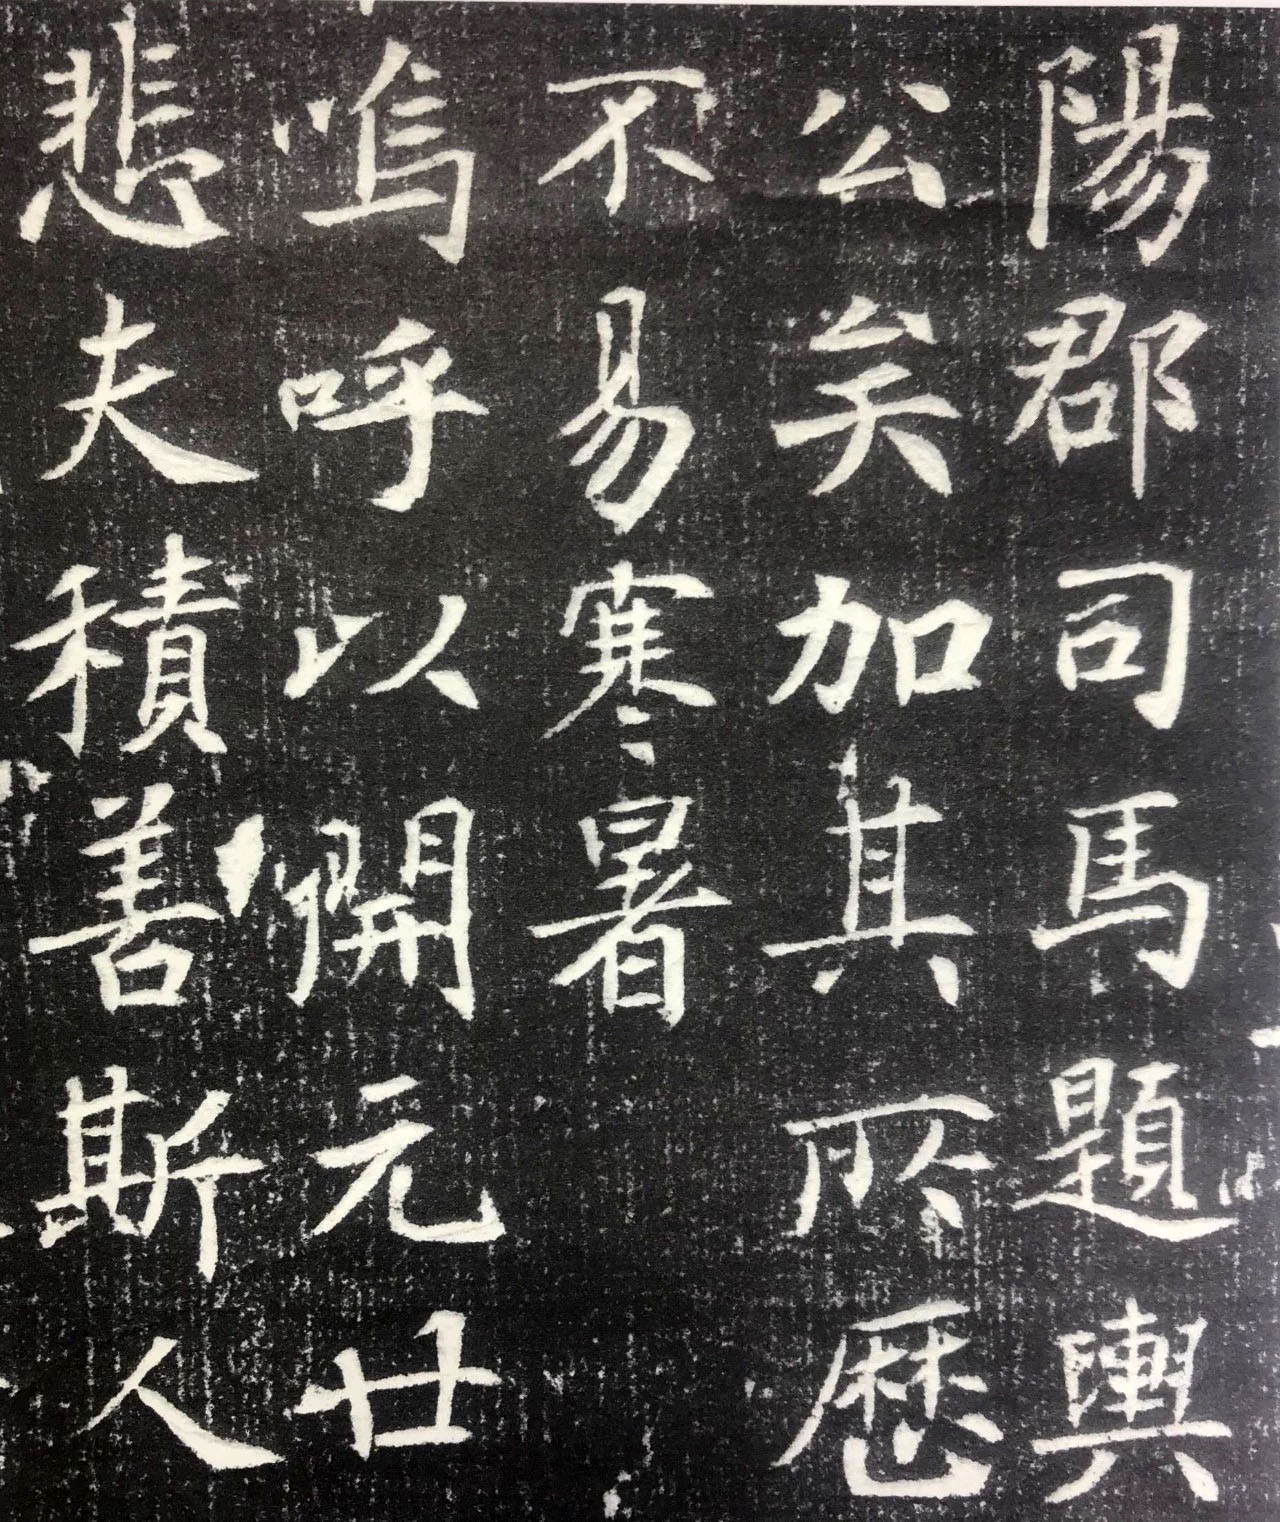 陽郡司馬題輿
公矣加其所歷
不易寒暑
嗚呼以開元廿
悲夫積善斯人